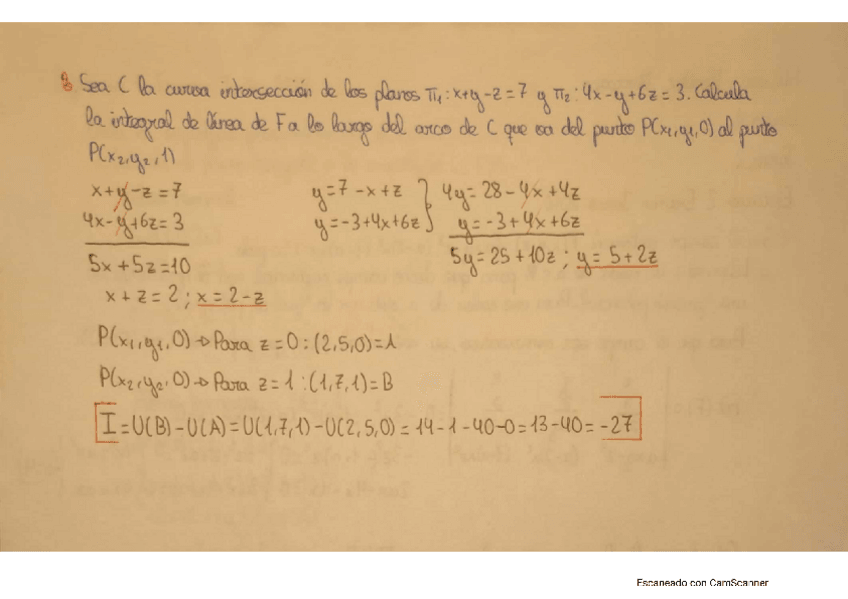 b Sea C la curva intersección de los planos π₁: x+y-z=7 y π₂: 4x-y+6z=3. Calcula
la integral de línea de F a lo largo del arco de C que va del punto P(x₁,y₁,0) al punto
P(x₂,y₂,1)
x+y-z=7
4x-y+6z=3
5x+5z=10
x+z=2; x=2-z
y=7-x+z
y=-3+4x+6z
4y=28-4x+4z
y=-3+4x+6z
5y=25+10z; y=5+2z
P(x₁,y₁,0) → Para z=0: (2,5,0)=A
P(x₂,y₂,0) → Para z=1: (1,7,1)=B
I=U(B)-U(A)=U(1,7,1)-U(2,5,0)=14-1-40-0=13-40=-27
Escaneado con CamScanner